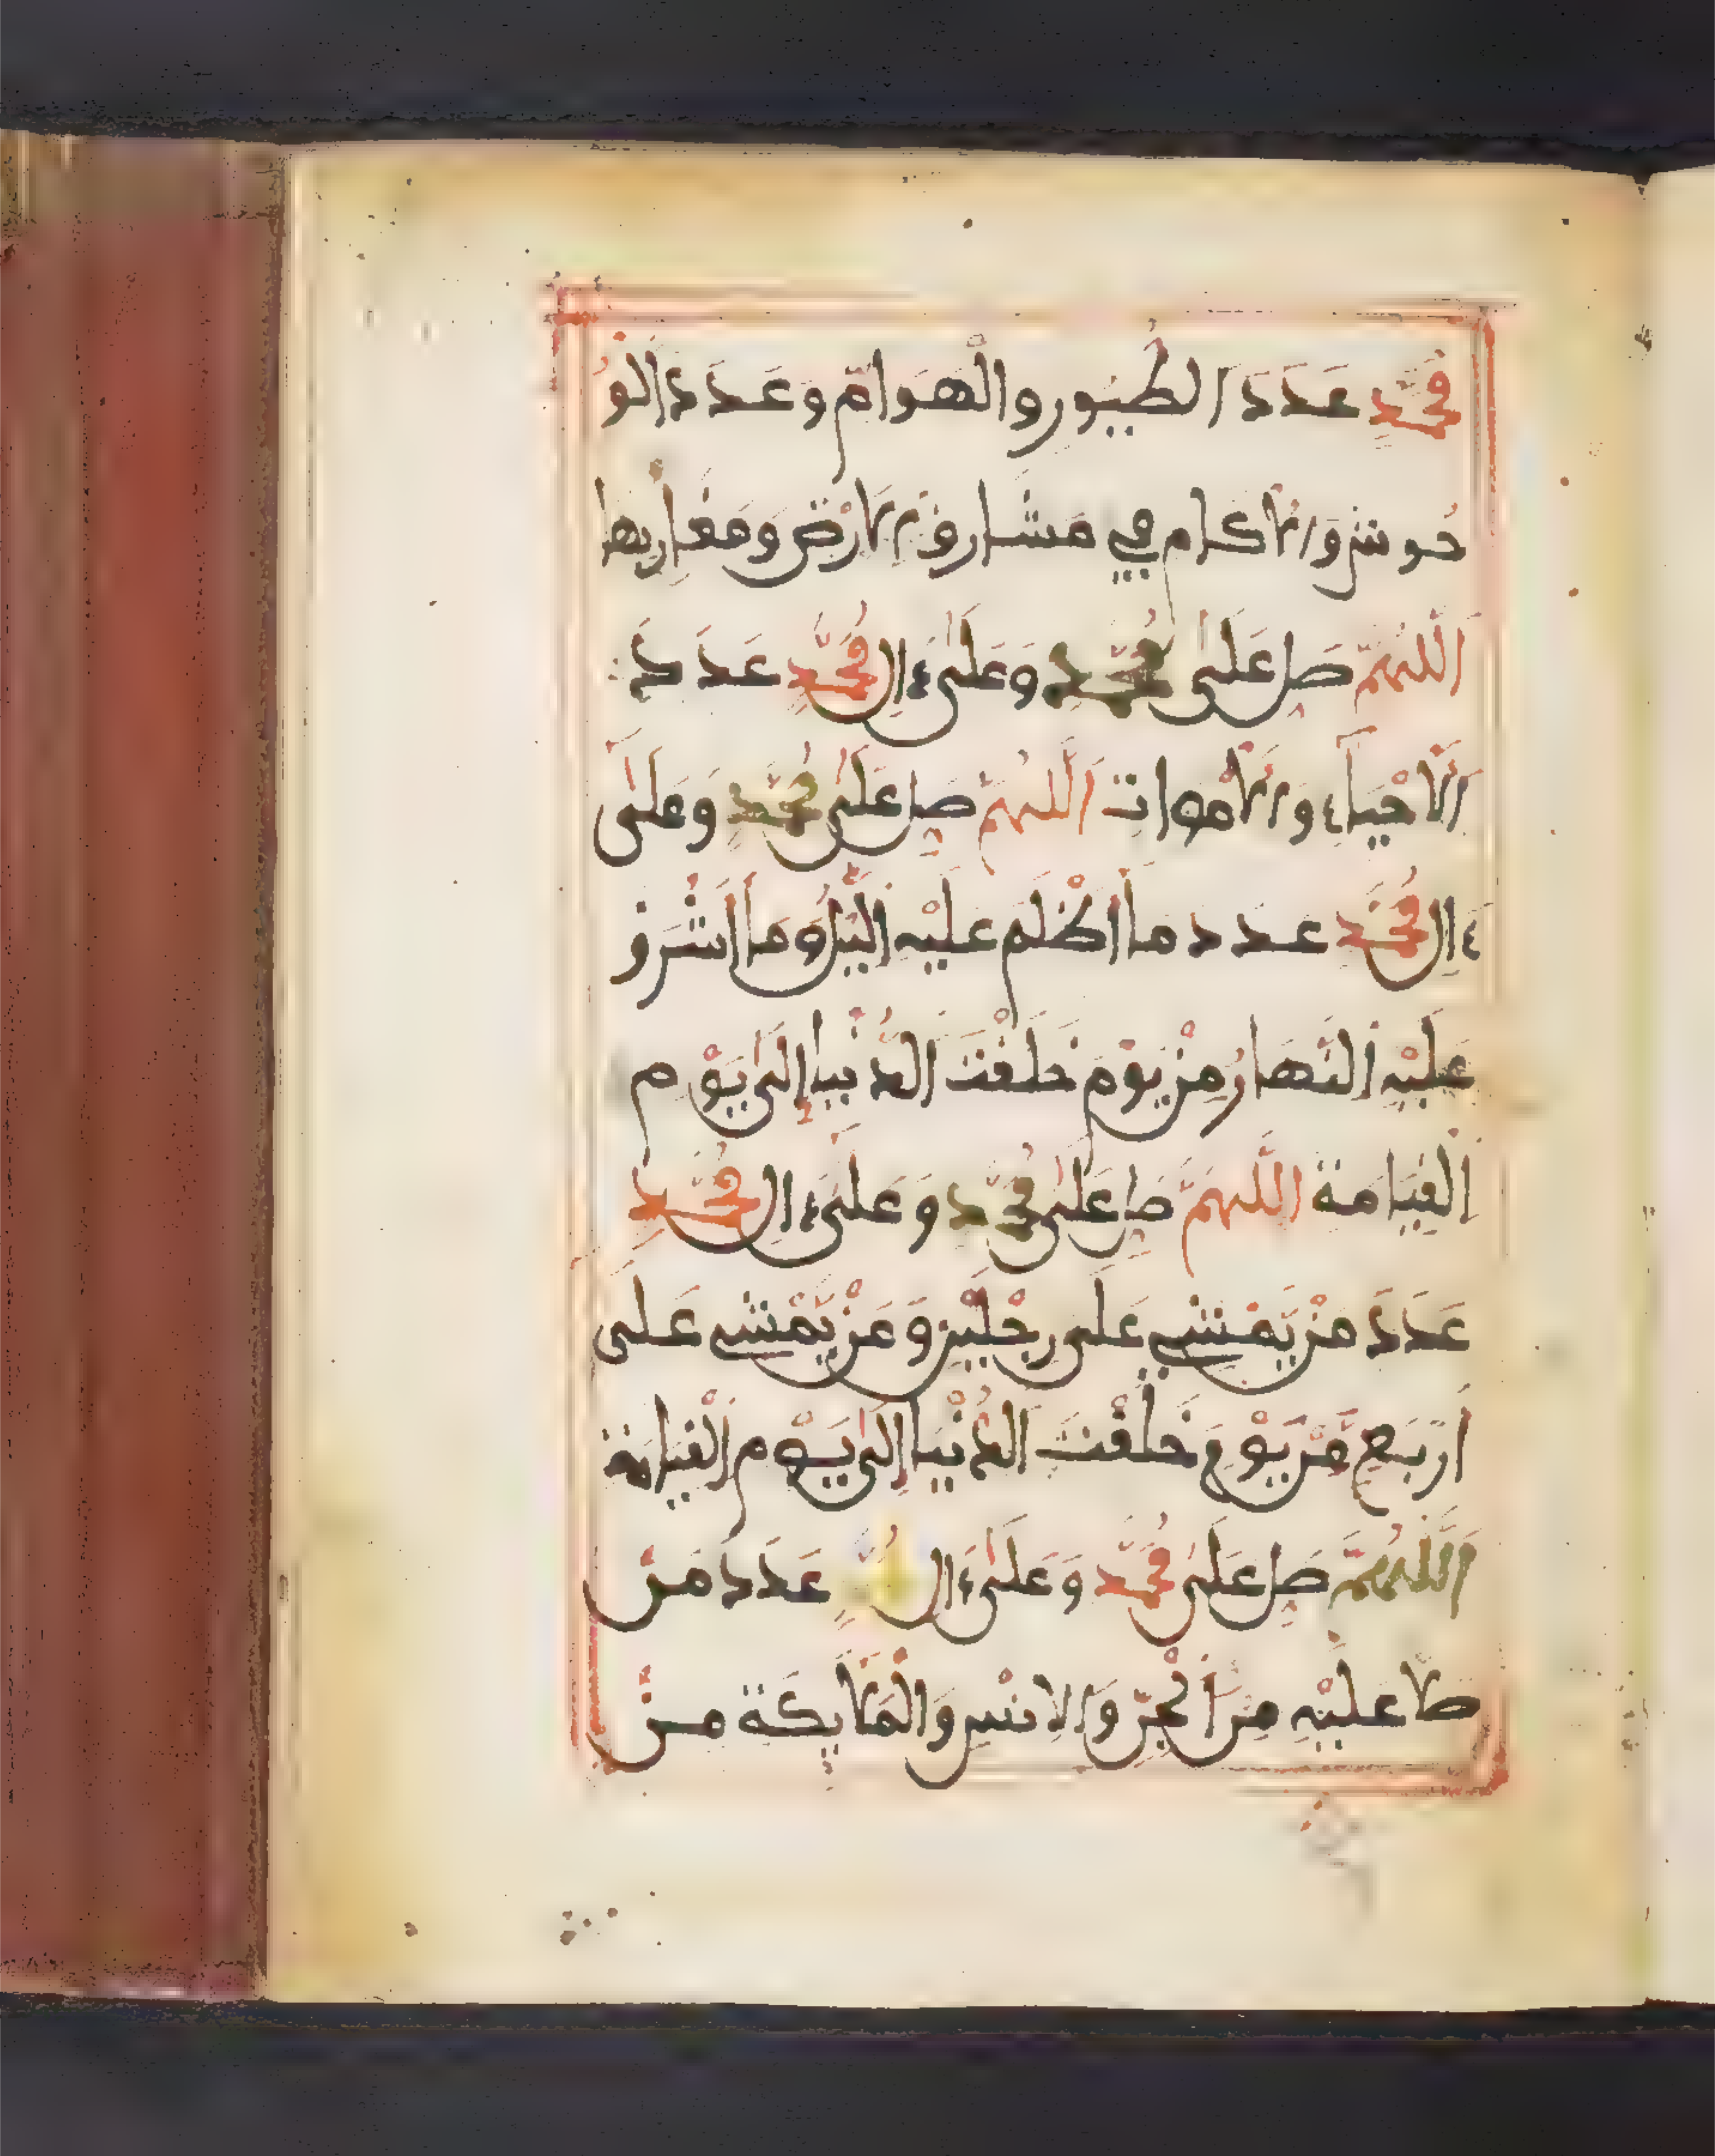 مُحَمَّدٍ عَدَدَ الطُّيُورِ والْهَوَامِّ وَعَدَدَ الْوُ
حُوشِ وَالْأَكَامِ فِي مَشَارِقِ الْأَرْضِ وَمَغَارِبِهَا
اَللَّهُمَّ صَلِّ عَلَىٰ مُحَمَّدٍ وَعَلَىٰ ءَالِ مُحَمَّدٍ عَدَدَ
اَلْأَحْيَاءِ وَالْأَمْوَاتِ اَللَّهُمَّ صَلِّ عَلَىٰ مُحَمَّدٍ وَعَلَىٰ
ءَالِ مُحَمَّدٍ عدد مَا أَظْلَمَ عَلَيْهِ الَّيْلُ وَمَا أَشْرَقَ
عَلَيْهِ النَّهَارُ مِنْ يَوْمِ خَلَقْتَ الدُّنْيَا إِلَىٰ يَوْمِ
الْقِيَامَةِ اللَّهُمَّ صَلِّ عَلَىٰ مُحَمَّدٍ وَعَلَىٰ ءَالِ مُحَمَّدٍ
عَدَدَ مَنْ يَّمْشِي عَلَى رِجْلَيْنِ وَمَنْ يَّمْشِي عَلَى
أَرْبَعٍ مِّنْ يَوْمِ خَلَقْتَ الدُّنْيَا إِلَىٰ يَوْمِ الْقِيَامَةِ
اَللَّهُمَّ صَلِّ عَلَىٰ مُحَمَّدٍ وَعَلَىٰ ءَالِ مُحَمَّدٍ عَدَدَ مَنْ
صَلَّا عَلَيْهِ مِنَ الْجِنِّ وَالْإِنْسِ وَالْمَلَايِكَةِ مِنْ